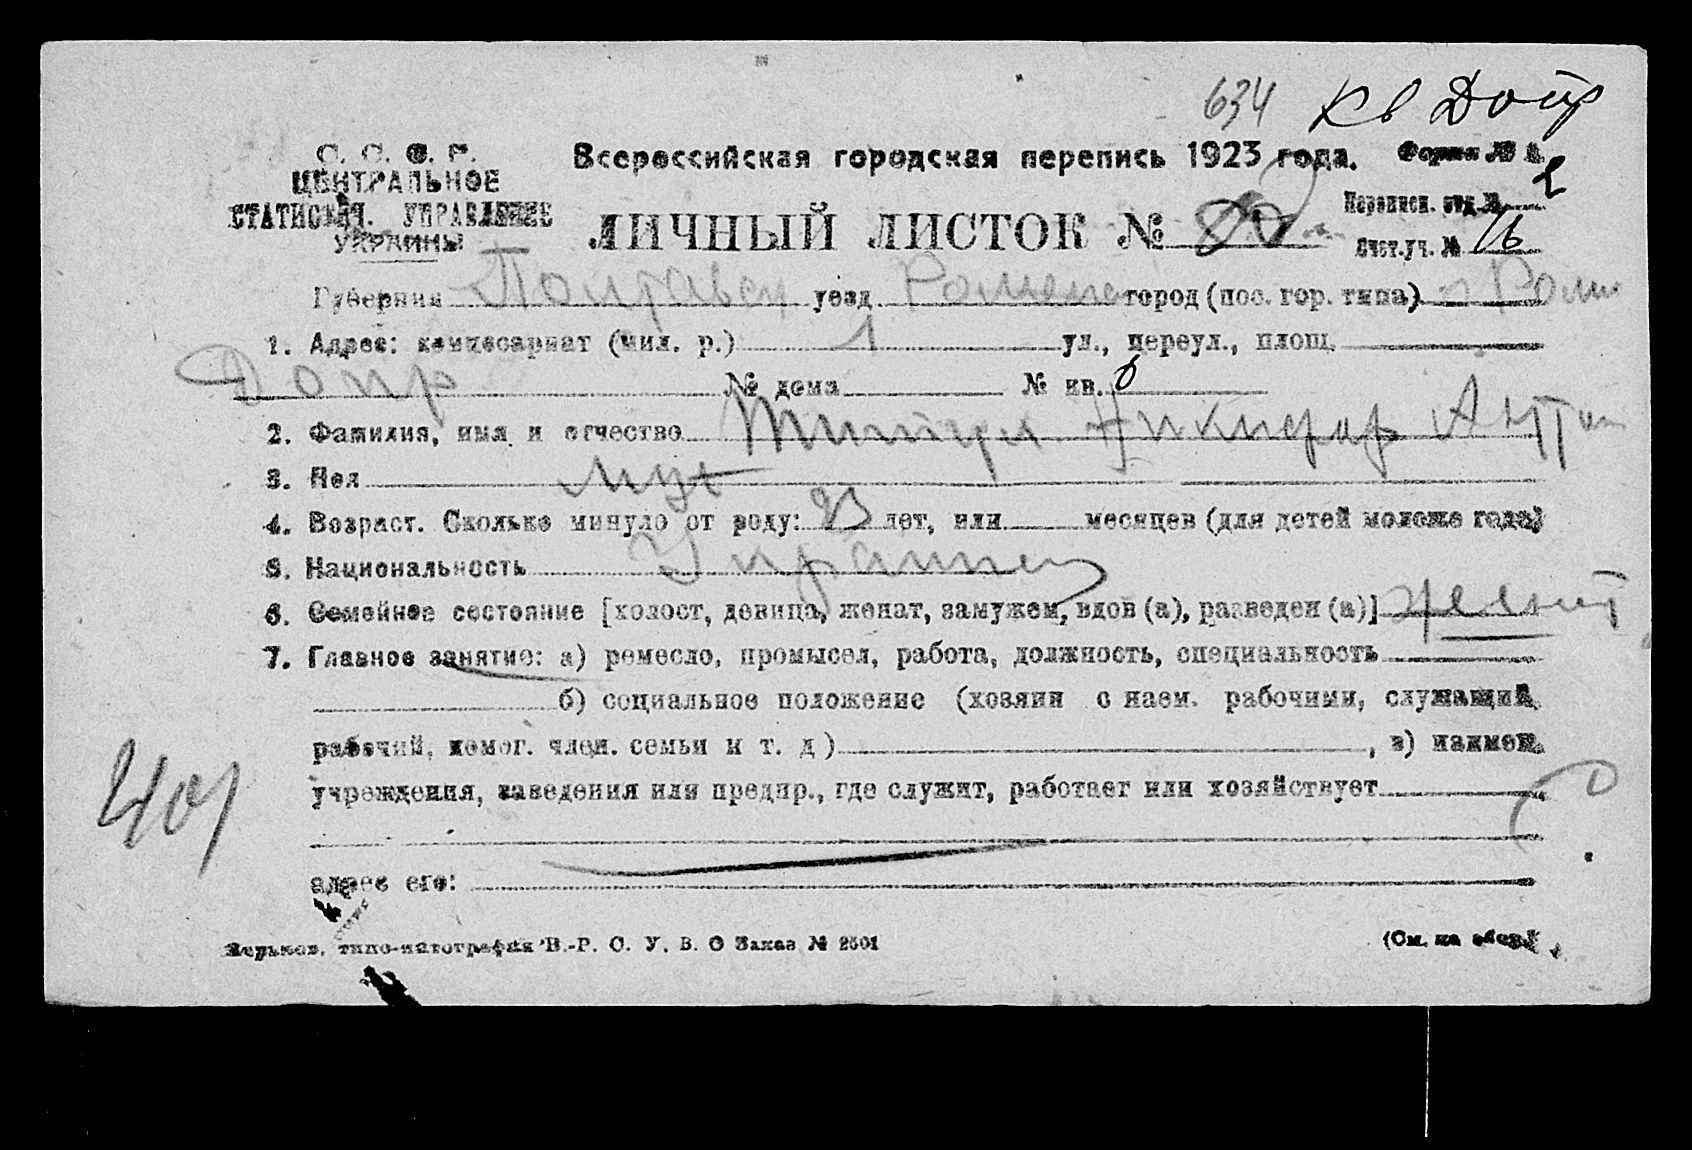 634 кв Допр
С. С. С. Р.
ЦЕНТРАЛЬНОЕ
СТАТИСТИЧ. УПРАВЛЕНИЕ
УКРАИНЫ
Всероссийская городская перепись 1923 года. Форма № 1.
ЛИЧНЫЙ ЛИСТОК № 80
Переписн. отд. № 2
Счет.уч. № 16
Губерния Полтавск уезд Роменс город (пос. гор. типа) г Ромн
1. Адрес: комиссариат (мил. р.) 1 ул., переул., площ.
Допр № дома № кв. 6
2. Фамилия, имя и отчество Никифор Ант
3. Пол муж
4. Возраст. Сколько минуло от роду: 23 лет, или месяцев (для детей моложе года)
5. Национальность Украинец
6. Семейное состояние [холост, девица, женат, замужем, вдов (а), разведен (а)] женат
7. Главное занятие: а) ремесло, промысел, работа, должность, специальность
б) социальное положение (хозяин с наем. рабочими, служащий,
рабочий, помог. член. семьи и т. д) , в) наимен.
учреждения, заведения или предпр., где служит, работает или хозяйствует
401
адрес его:
Харьков, типо-литография В.-Р. С. У. В. О Заказ № 2501 (См. на обор.)